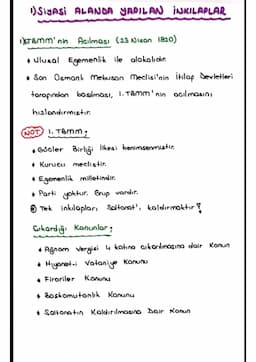 1) SİYASİ ALANDA YAPILAN İNKILAPLAR
1) TBMM'nin Açılması (23 Nisan 1920)
• Ulusal Egemenlik ile alakalıdır.
• Son Osmanlı Mebusan Meclisi'nin İtilaf Devletleri
tarafından basılması, 1. TBMM'nin açılmasını
hızlandırmıştır.
NOT 1. TBMM;
• Güçler Birliği ilkesi benimsenmiştir.
• Kurucu meclistir.
• Egemenlik milletindir.
• Parti yoktur. Grup vardır.
Tek inkılapları Saltanat'ı kaldırmaktır!
Çıkardığı Kanunlar;
• Ağnam Vergisi 4 katına çıkarılmasına dair Kanun
• Hıyanet-i Vataniye Kanunu
• Firariler Kanunu
• Başkomutanlık Kanunu
• Saltanatın Kaldırılmasına Dair Kanun